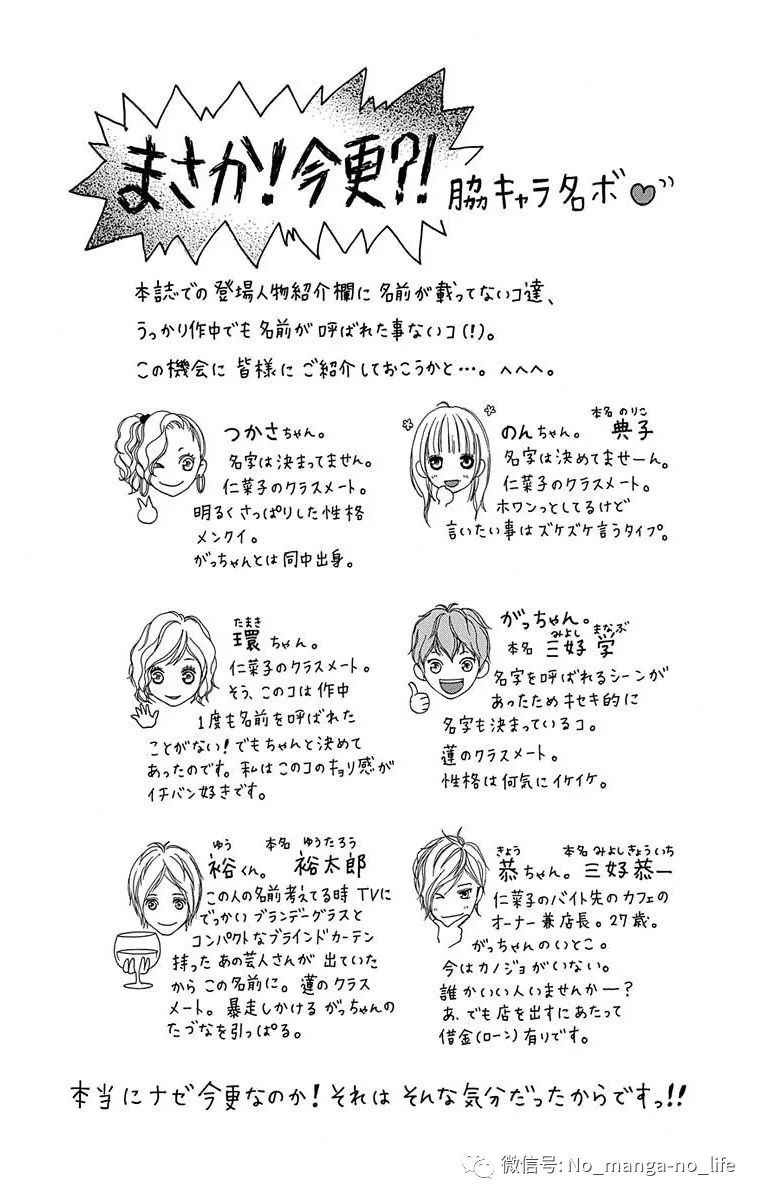 まさか!今更?!
脇キャラ名ボ♥
本誌での登場人物紹介欄に名前が載ってないコ達、
うっかり作中でも名前が呼ばれた事ないコ(!)。
この機会に皆様にご紹介しておこうかと…。へへへ。
つかさちゃん。
名字は決まってません。
仁菜子のクラスメート。
明るくさっぱりした性格
メンクイ。
がっちゃんとは同中出身。
のんちゃん。本名 典子
のりこ
名字は決めてませーん。
仁菜子のクラスメート。
ホワンっとしてるけど
言いたい事はズケズケ言うタイプ。
たまき
環ちゃん。
仁菜子のクラスメート。
そう、このコは作中
1度も名前を呼ばれた
ことがない!でもちゃんと決めて
あったのです。私はこのコのキョリ感が
イチバン好きです。
がっちゃん。
みよし まなぶ
本名 三好 学
名字を呼ばれるシーンが
あったためキセキ的に
名字も決まっているコ。
蓮のクラスメート。
性格は何気にイケイケ。
ゆう 本名 ゆうたろう
裕くん。裕太郎
この人の名前考えてる時TVに
でっかいブランデーグラスと
コンパクトなブラインドカーテン
持ったあの芸人さんが出ていた
からこの名前に。蓮のクラス
メート。暴走しかけるがっちゃんの
たづなを引っぱる。
きょう 本名 みよしきょういち
恭ちゃん。三好恭一
仁菜子のバイト先のカフェの
オーナー兼店長。27歳。
がっちゃんのいとこ。
今はカノジョがいない。
誰かいい人いませんかー?
あ、でも店を出すにあたって
借金(ローン)有りです。
本当にナゼ今更なのか!それはそんな気分だったからですっ!!
微信号: No_manga-no_life